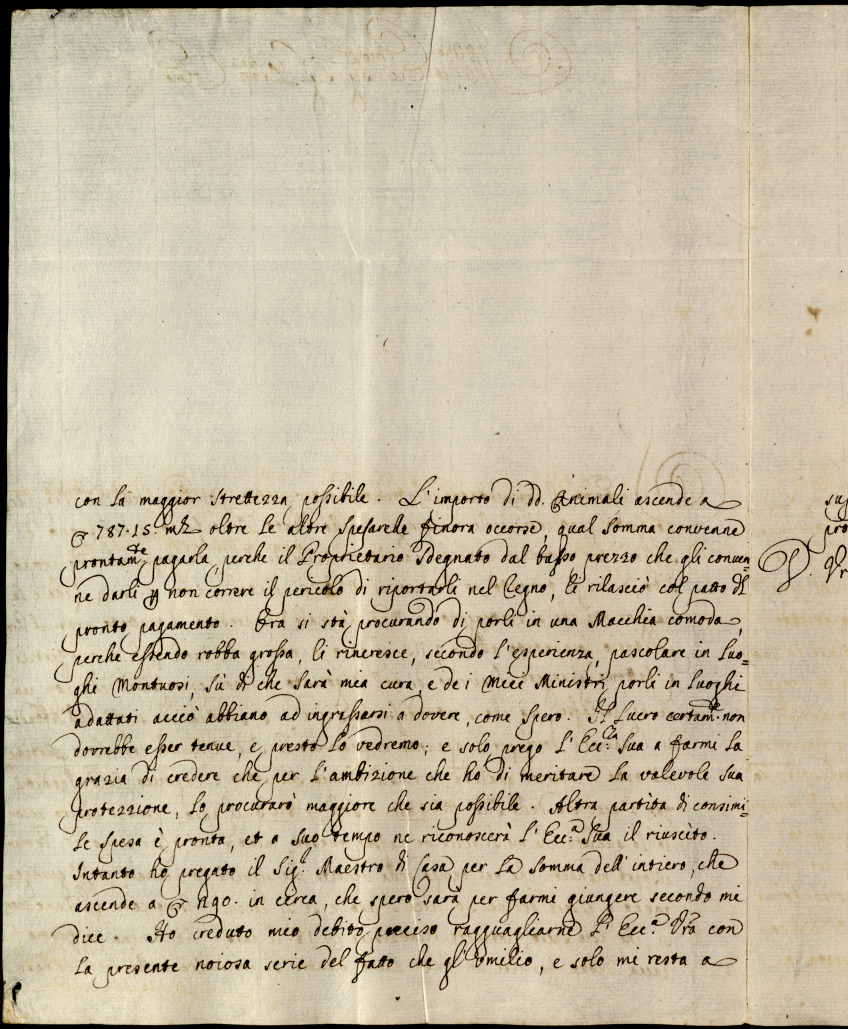 con la maggior strettezza possibile. L'importo di dd. Animali ascende a
787.15 mta oltre le altre spesarelle finora occorse, qual somma convenne
prontamte pagarla, perche il Proprietario sdegnato dal basso prezzo che gli conven=
ne darli p non correre il pericolo di riportarli nel Regno, li rilasciò col patto di
pronto pagamento. Ora si stà procurando di porli in una Macchia comoda,
perche essendo robba grossa, li rincresce, secondo l'esperienza, pascolare in luo=
ghi Montuosi, sù di che sarà mia cura, e de i Miei Ministri porli in luoghi
adattati acciò abbiano ad ingrassarsi a dovere, come spero. Il lucro certamte non
dovrebbe esser tenue, e presto lo vedremo; e solo prego l'Ecc:za Sua a farmi la
grazia di credere che per l'ambizione che ho di meritare la valevole sua
protezzione, lo procurarò maggiore che sia possibile. Altra partita di consimi=
le spesa è pronta, et a suo tempo ne riconoscerà l'Ecc:a Sua il riuscito.
Intanto ho pregato il Sig:r Maestro di Casa per la somma dell'intiero, che
ascende a in cerca, che spero sarà per farmi giungere secondo mi
dice. Ho creduto mio debito preciso ragguagliarne l'Ecc:a Vra con
la presente noiosa serie del fatto che gl'umilio, e solo mi resta a